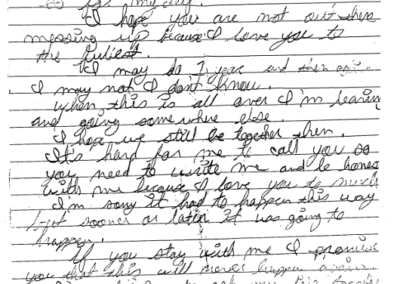 my day.
I hope you are not out there
messing up because I love you to
the fullest.
I may do 7 year and then again
I may not I don't know.
When this is all over I'm leaving
and going somewhere else.
I hope we still be together then.
It's hard for me to call you so
you need to write me and be hones
with me because I love you to much
I'm sorry it had to happen this way
but sooner or later it was going to
happen.
If you stay with me I promise
you that this will never happen again